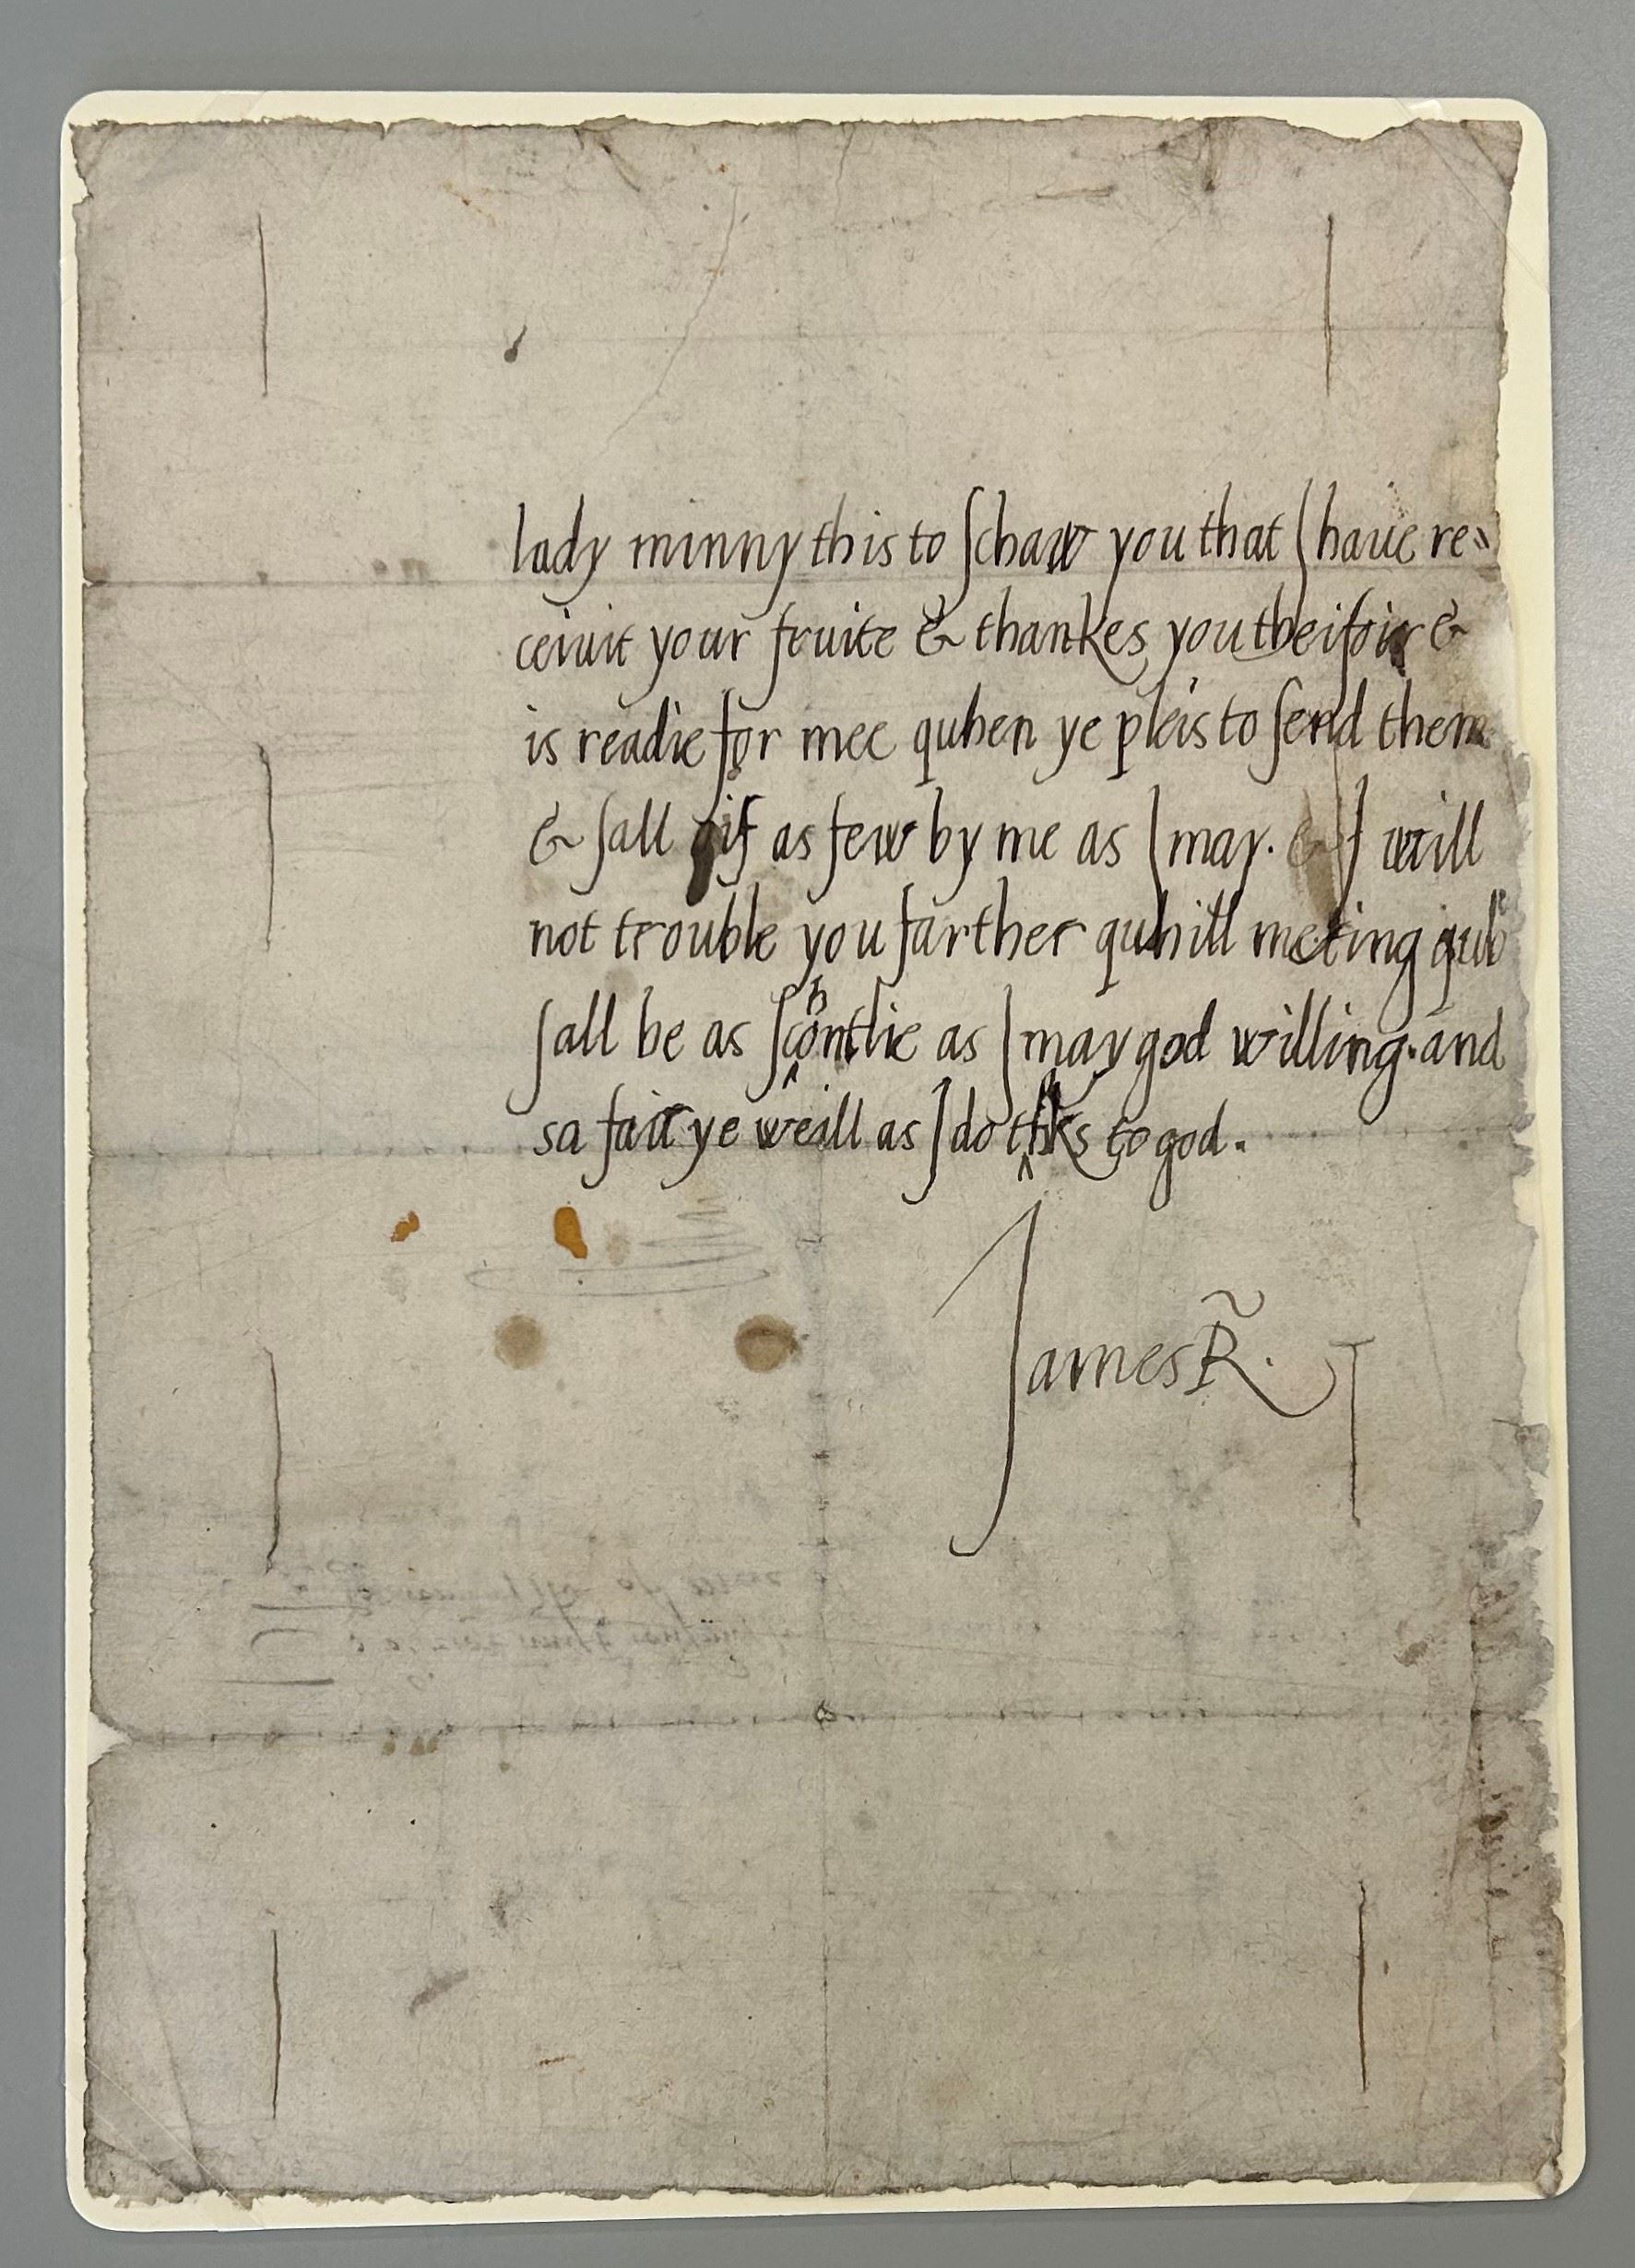 lady minny this to schaw you that I haue re=
ceiuit your fruite & thankes you theifoir &
is readie for mee quhen ye pleis to send them
& sall gif as few by me as I may. & I will
not trouble you farther quhill meting quh
sall be as schontlie as I may god willing. and
sa fair ye weill as I do thks to god.
James R.